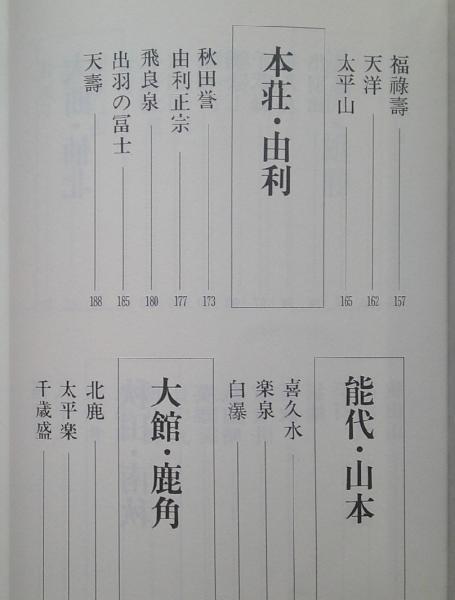 福祿壽 157
天洋 162
太平山 165
本荘・由利
秋田誉 173
由利正宗 177
飛良泉 180
出羽の冨士 185
天壽 188
能代・山本
喜久水
楽泉
白瀑
大館・鹿角
北鹿
太平楽
千歳盛